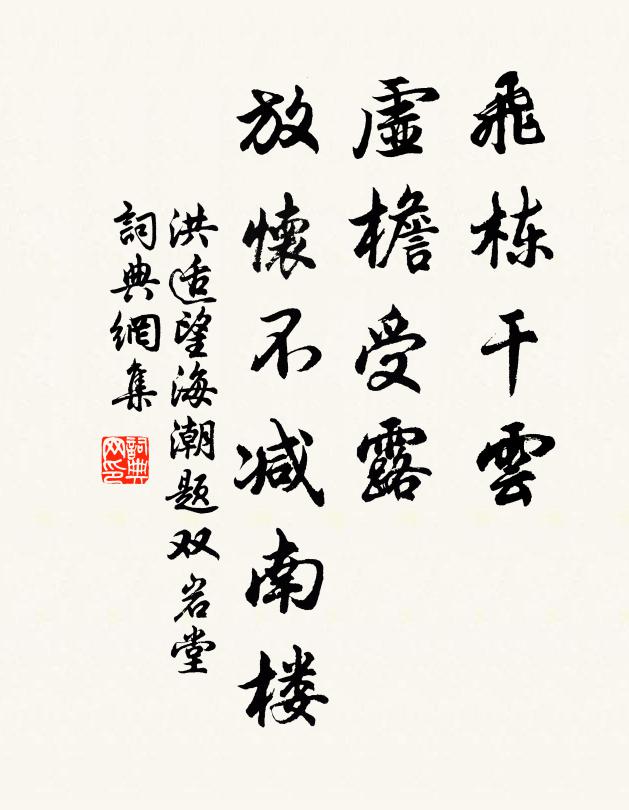 飛栋干雲
虚檐受露
放懷不减南楼
洪适望海潮題双岩堂
詞典網集
詞典
网印